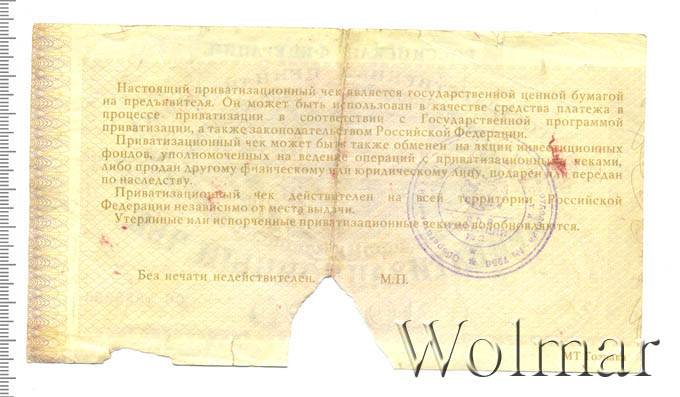 Настоящий приватизационный чек является государственной ценной бумагой
на предъявителя. Он может быть использован в качестве средства платежа в
процессе приватизации в соответствии с Государственной программой
приватизации, а также законодательством Российской Федерации.
Приватизационный чек может быть также обменен на акции инвестиционных
фондов, уполномоченных на ведение операций с приватизационными чеками,
либо продан другому физическому или юридическому лицу, подарен или передан
по наследству.
Приватизационный чек действителен на всей территории Российской
Федерации независимо от места выдачи.
Утерянные или испорченные приватизационные чеки не возобновляются.
Без печати недействителен. М.П.
МТ Гознака
Wolmar